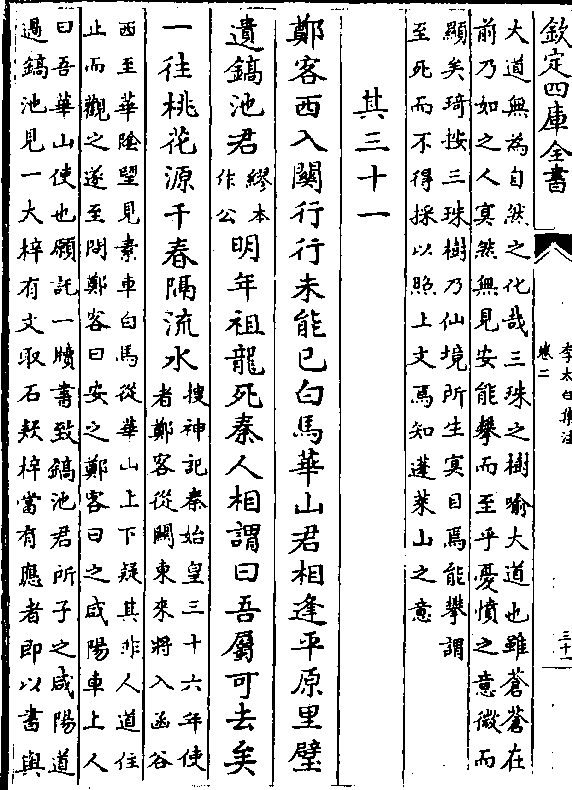 欽定四庫全書
李太白集注
卷二
三十一
大道無為自然之化哉三珠之樹喻大道也雖蒼蒼在
前乃如之人冥然無見安能攀而至乎憂憤之意微而
顯矣琦按三珠樹乃仙境所生冥目焉能攀謂
至死而不得採以照上文焉知蓬萊山之意
其三十一
鄭客西入關行行未能已白馬華山君相逢平原里璧
遺鎬池君繆本作公明年祖龍死秦人相謂曰吾屬可去矣
一往桃花源千春隔流水搜神記秦始皇三十六年使
者鄭客從關東來將入函谷
西至華陰望見素車白馬從華山上下疑其非人道住
止而觀之遂至問鄭客曰安之鄭客曰之咸陽車上人
曰吾華山使也願託一牘書致鎬池君所子之咸陽道
過鎬池見一大梓有文取石款梓當有應者即以書與